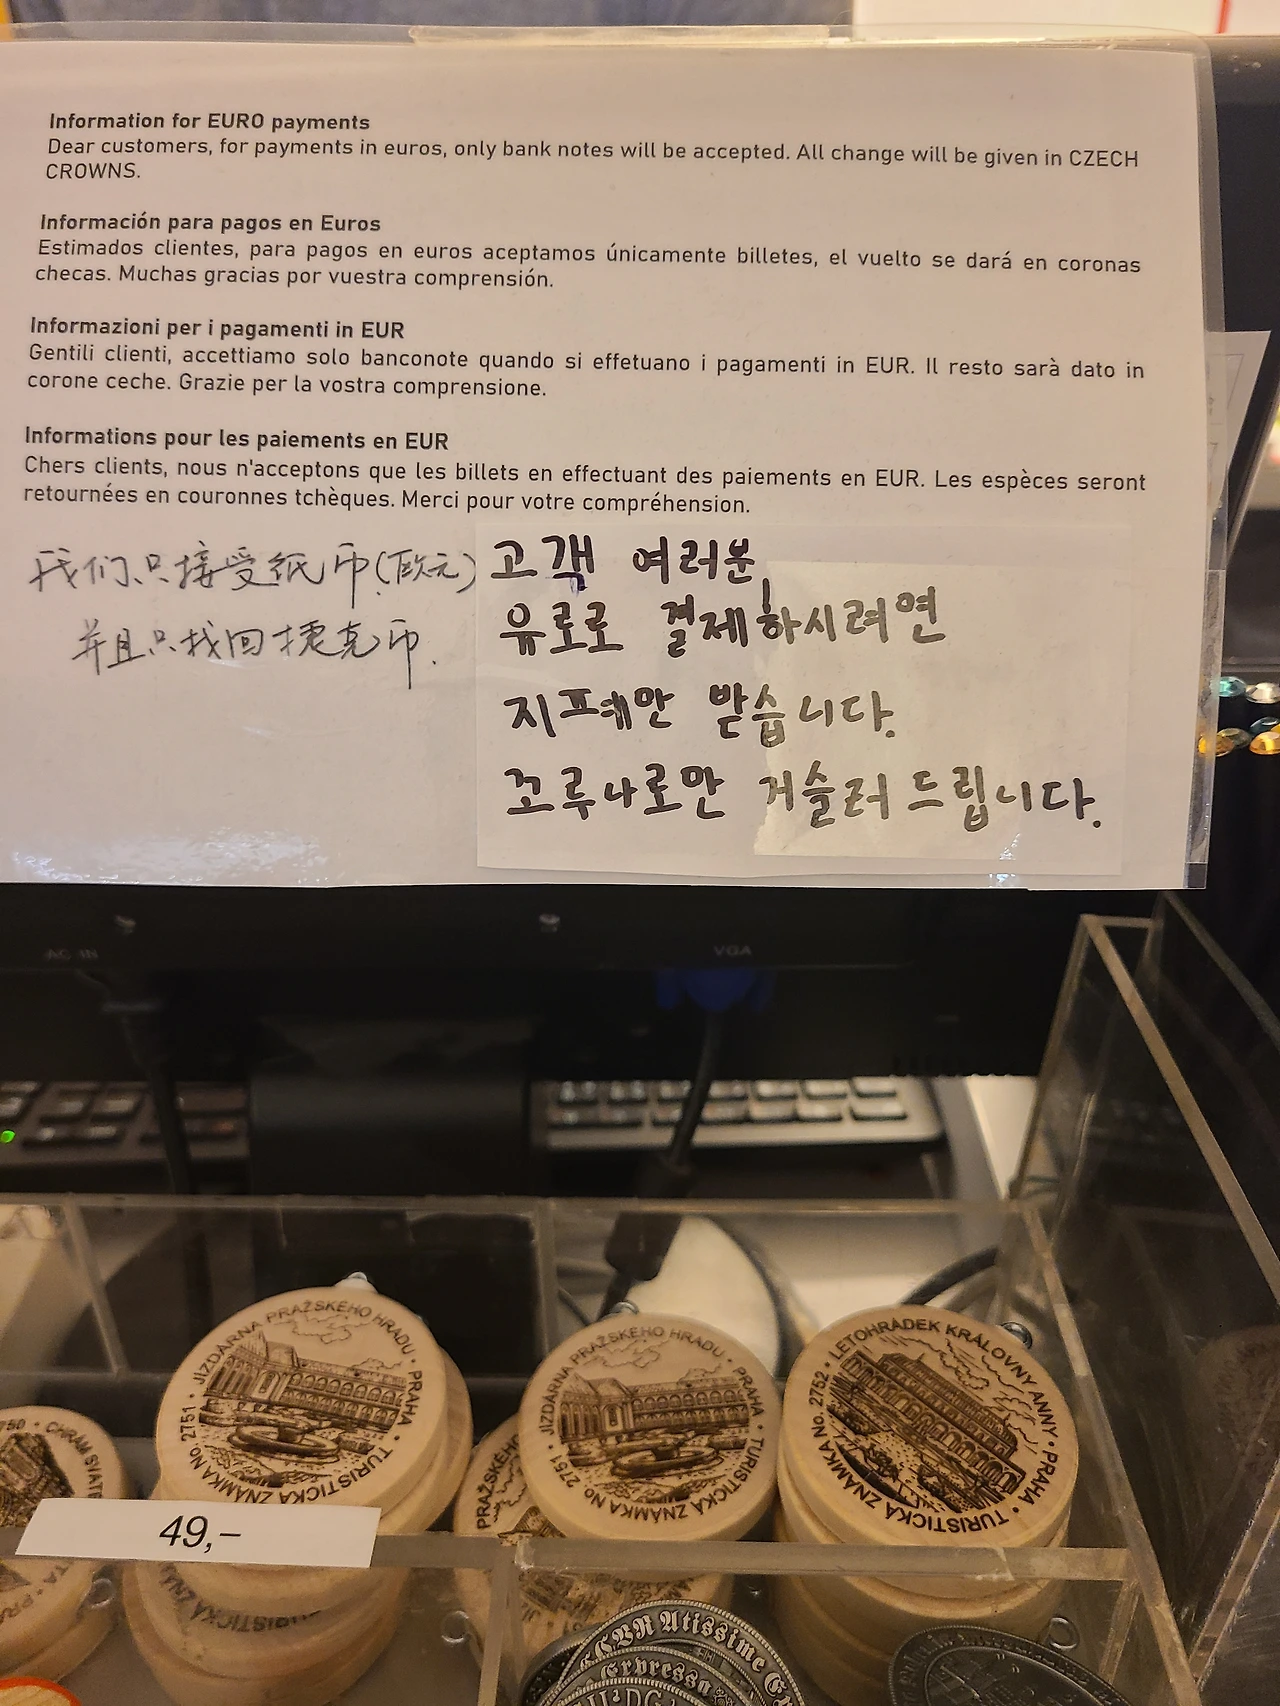 Information for EURO payments
Dear customers, for payments in euros, only bank notes will be accepted. All change will be given in CZECH
CROWNS.
Información para pagos en Euros
Estimados clientes, para pagos en euros aceptamos únicamente billetes, el vuelto se dará en coronas
checas. Muchas gracias por vuestra comprensión.
Informazioni per i pagamenti in EUR
Gentili clienti, accettiamo solo banconote quando si effetuano i pagamenti in EUR. Il resto sarà dato in
corone ceche. Grazie per la vostra comprensione.
Informations pour les paiements en EUR
Chers clients, nous n'acceptons que les billets en effectuant des paiements en EUR. Les espèces seront
retournées en couronnes tchèques. Merci pour votre compréhension.
我们只接受纸币(欧元)
并且只找回捷克币.
고객 여러분,
유로로 결제하시려면
지폐만 받습니다.
꼬루나로만 거슬러 드립니다.
AC IN
VGA
JÍZDÁRNA PRAŽSKÉHO HRADU • PRAHA • TURISTICKÁ ZNÁMKA No. 2751 •
JÍZDÁRNA PRAŽSKÉHO HRADU • PRAHA • TURISTICKÁ ZNÁMKA No. 2751 •
LETOHRÁDEK KRÁLOVNY ANNY • PRAHA • TURISTICKÁ ZNÁMKA No. 2752 •
750 • CHRÁM SVATÉ
PRAŽSKÉHO
49,–
Atissime
Expressa